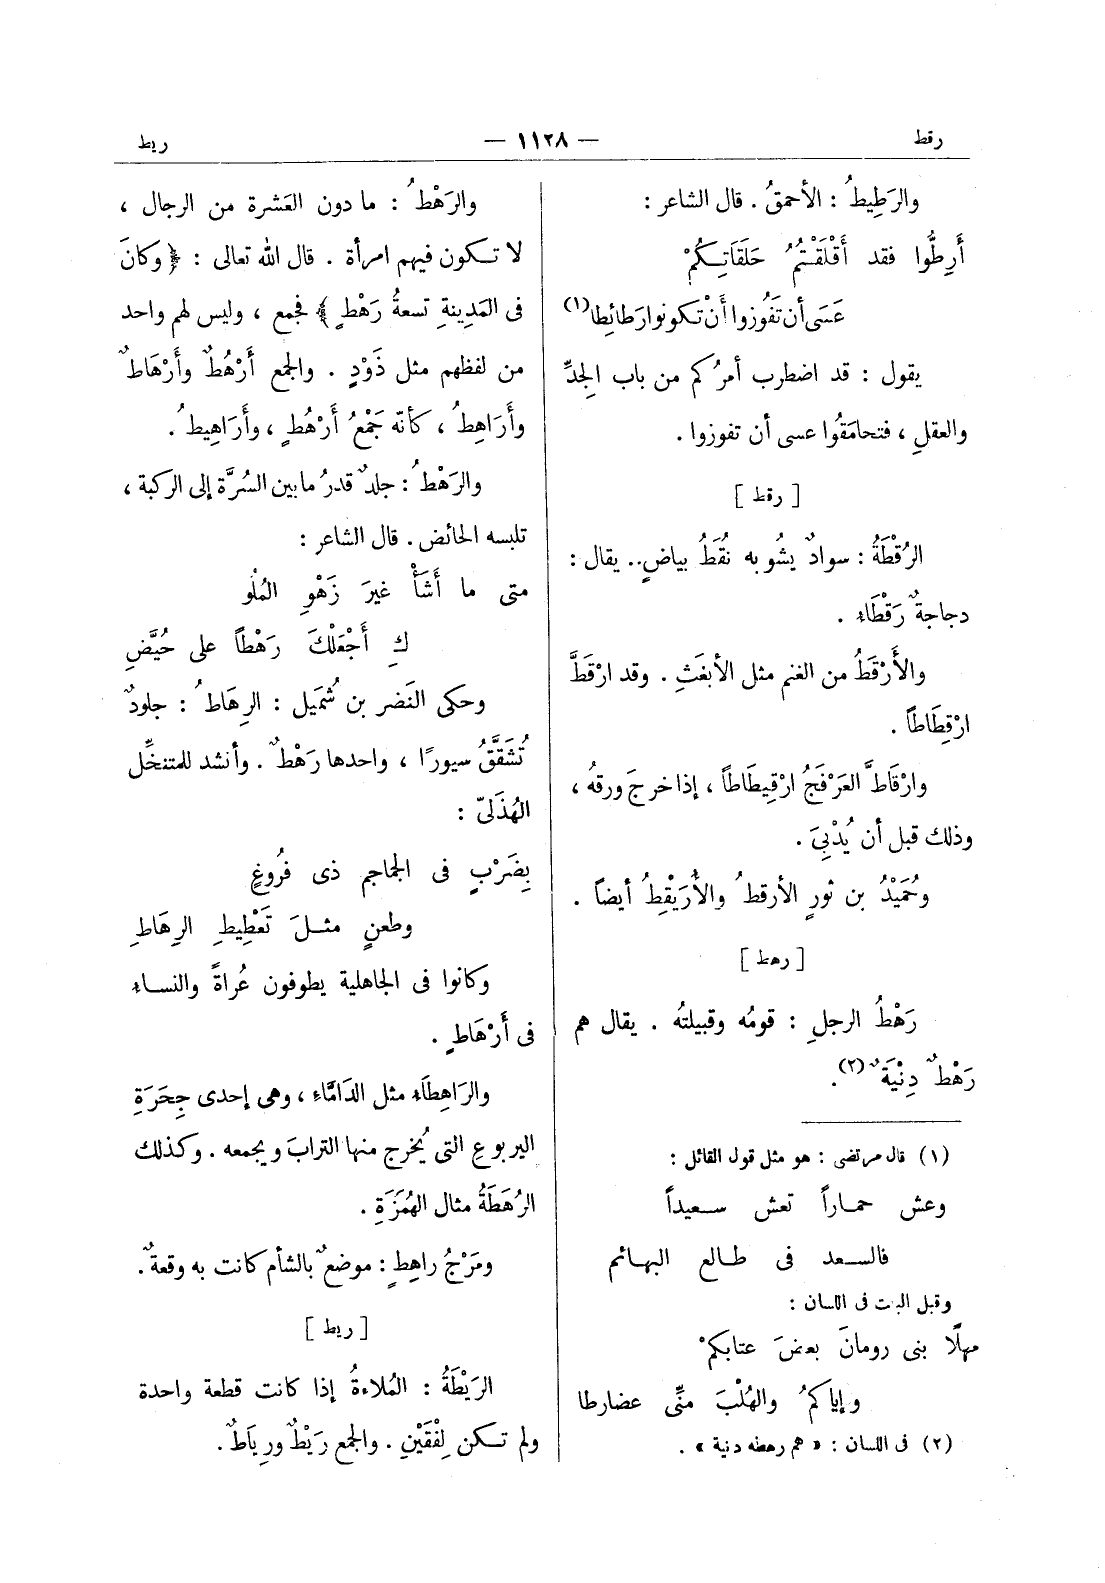 رقط
— ١١٢٨ —
ريط
والرَطِيطُ : الأحمقُ . قال الشاعر :
أَرِطُّوا فقد أَقْلَقْتُمُ حَلَقَاتِكُمْ
عَسَى أن تَفُوزوا أَنْ تكونوا رَطائِطا (١)
يقول : قد اضطرب أمرُكم من باب الجِدِّ
والعقلِ ، فتحامَقُوا عسى أن تفوزوا .
[ رقط ]
الرُقْطَةُ : سوادٌ يشُوبه نُقَطُ بياضٍ .. يقال :
دجاجةٌ رَقْطَاء .
والأَرْقَطُ من الغنم مثل الأبغَثِ . وقد ارْقَطَّ
ارْقِطَاطاً .
وارْقَاطَّ العَرْفَجُ ارْقِيطَاطاً ، إذا خرجَ ورقهُ ،
وذلك قبل أن يُدْبِىَ .
وحُمَيْدُ بن ثورٍ الأرقطُ والأُرَيْقِطُ أيضاً .
[ رهط ]
رَهْطُ الرجلِ : قومُه وقبيلتُه . يقال هم
رَهْطٌ دِنْيَةٌ (٢) .
(١) قال مرتضى : هو مثل قول القائل :
وعش حماراً تعش سعيداً
فالسعد فى طالع البهائم
وقبل البيت فى اللسان :
مهلًا بنى رومانَ بعضَ عتابكمْ
وإياكمُ والهُلْبَ منِّى عضارطا
(٢) فى اللسان : « هم رهطه دنية » .
والرَهْطُ : ما دون العَشرة من الرجال ،
لا تكون فيهم امرأة . قال الله تعالى : ﴿ وكانَ
فى المَدِينةِ تسعةُ رَهْطٍ ﴾ فجمع ، وليس لهم واحد
من لفظهم مثل ذَوْدٍ . والجمع أَرْهُطٌ وأَرْهَاطٌ
وأَرَاهِطُ ، كأنّه جَمْعُ أَرْهُطٍ ، وأَرَاهِيطُ .
والرَهْطُ : جلدٌ قدرُ ما بين السُرَّة إلى الركبة ،
تلبسه الحائض . قال الشاعر :
متى ما أَشَأْ غيرَ زَهْوِ المُلُو
كِ أَجْعَلْكَ رَهْطاً على حُيَّضِ
وحكى النَضر بن شُمَيل : الرِهَاطُ : جلودٌ
تُشَقَّقُ سيورًا ، واحدها رَهْطٌ . وأنشد للمتنخِّل
الهُذَلىّ :
بِضَرْبٍ فى الجماجم ذى فُرُوغٍ
وطعنٍ مثلَ تَعْطِيطِ الرِهَاطِ
وكانوا فى الجاهلية يطوفون عُراةً والنساء
فى أَرْهَاطٍ .
والرَاهِطَاء مثل الدَامَّاء ، وهى إحدى جِحَرَةِ
اليربوعِ التى يُخرج منها الترابَ ويجمعه . وكذلك
الرُهَطَةُ مثال الهُمَزَةِ .
ومَرْجُ راهِطٍ : موضعٌ بالشأم كانت به وقعةٌ .
[ ريط ]
الرَيْطَةُ : المُلاءةُ إذا كانت قطعة واحدة
ولم تكن لِفْقَيْنِ . والجمع رَيْطٌ ورِيَاطٌ .